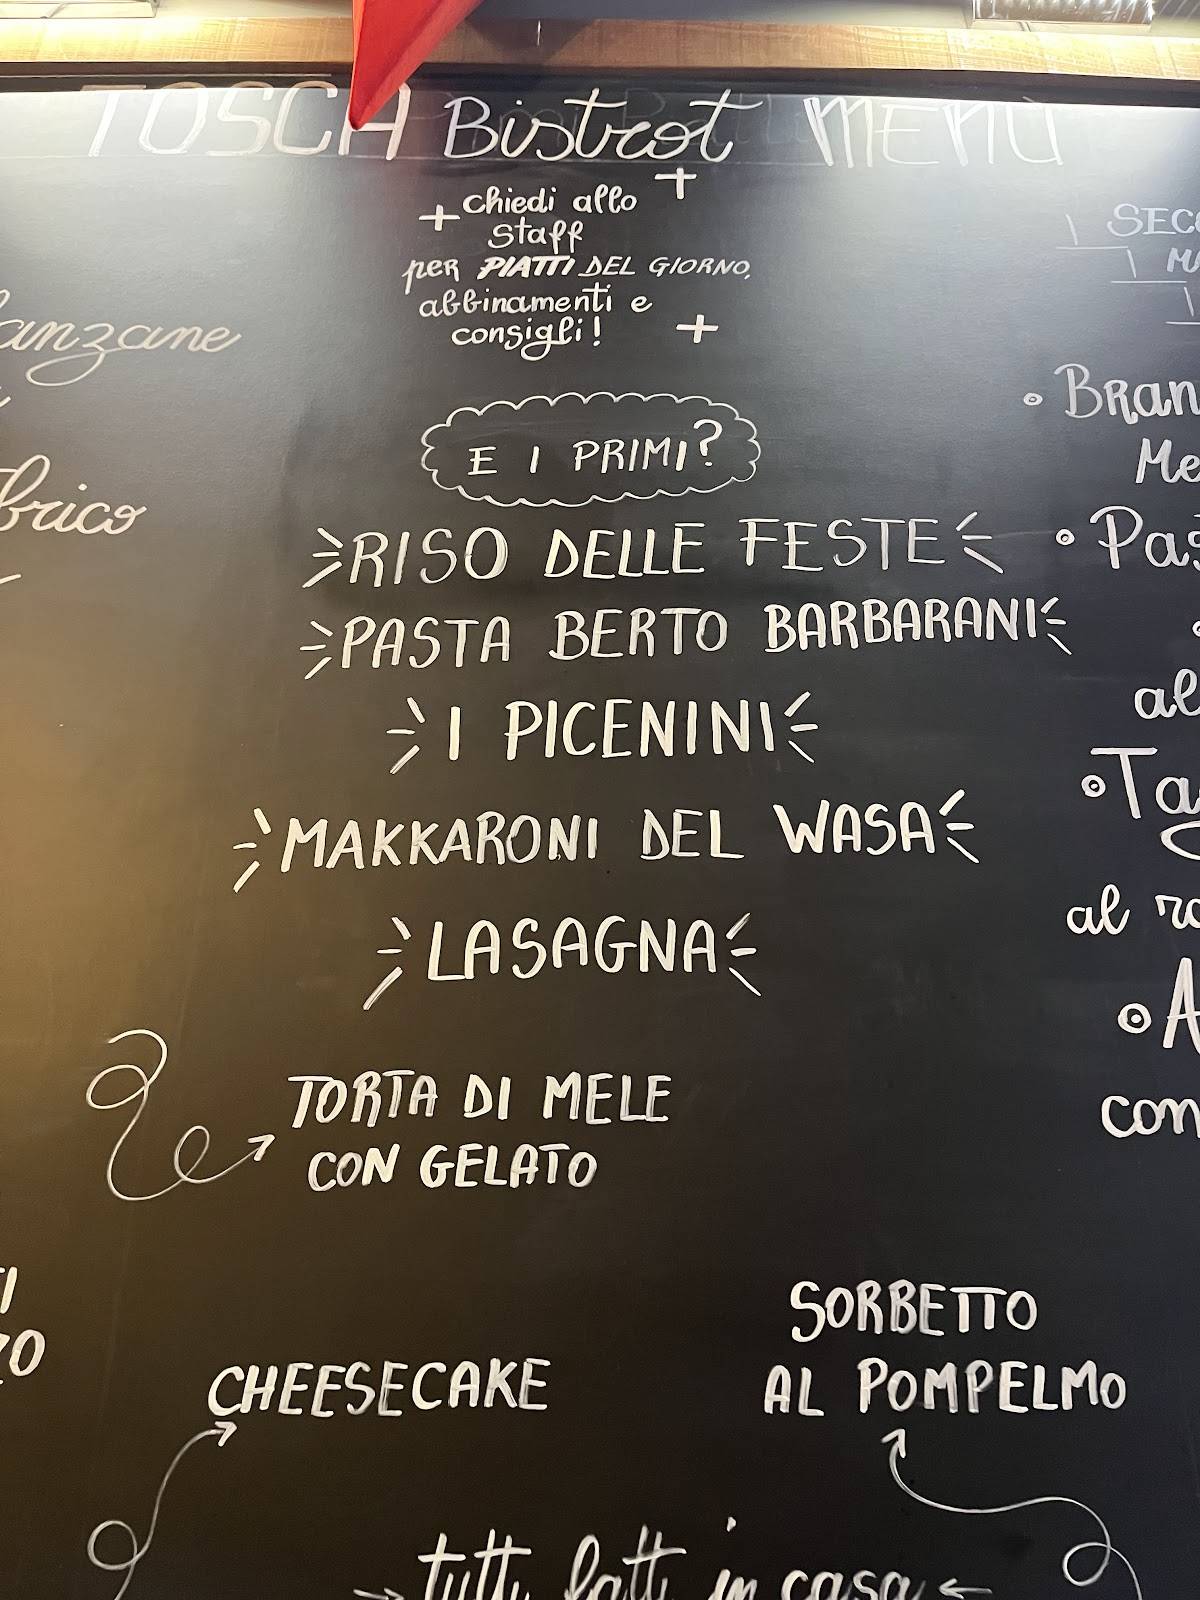 TOSCA Bistrot MENU
chiedi allo
staff
per PIATTI DEL GIORNO,
abbinamenti e
consigli!
E I PRIMI?
RISO DELLE FESTE
PASTA BERTO BARBARANI
I PICENINI
MAKKARONI DEL WASA
LASAGNA
TORTA DI MELE
CON GELATO
CHEESECAKE
SORBETTO
AL POMPELMO
tutti fatti in casa
anzane
brico
TI
ZO
SECO
MA
Bran
Me
Pas
al
Tag
al ro
A
con